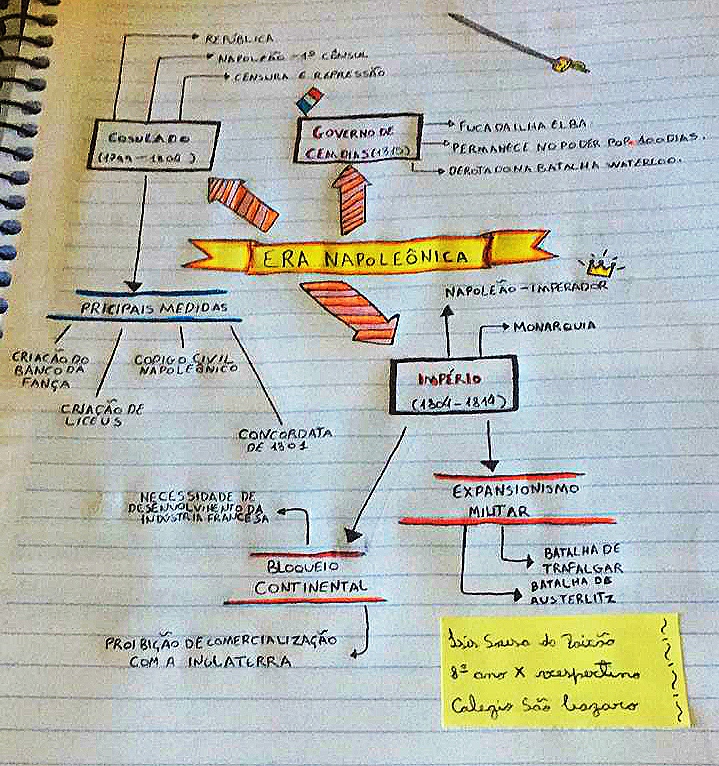 REPÚBLICA
NAPOLEÃO - 1º CÔNSUL
CENSURA E REPRESSÃO
COSULADO
(1799-1804)
GOVERNO DE
CEM DIAS (1815)
FUGA DA ILHA ELBA.
PERMANECE NO PODER POR 100 DIAS.
DEROTADO NA BATALHA WATERLOO.
ERA NAPOLEÔNICA
PRICIPAIS MEDIDAS
CRIAÇÃO DO
BANCO DA
FANÇA
CRIAÇÃO DE
LICEUS
CODIGO CIVIL
NAPOLEÔNICO
CONCORDATA
DE 1801
NAPOLEÃO - IMPERADOR
MONARQUIA
IMPÉRIO
(1804-1814)
NECESSIDADE DE
DESENVOLVIMENTO DA
INDUSTRIA FRANCESA
BLOQUEIO
CONTINENTAL
PROIBIÇÃO DE COMERCIALIZAÇÃO
COM A INGLATERRA
EXPANSIONISMO
MILITAR
BATALHA DE
TRAFALGAR
BATALHA DE
AUSTERLITZ
8º ano X vespertino
Colegio São Lazaro